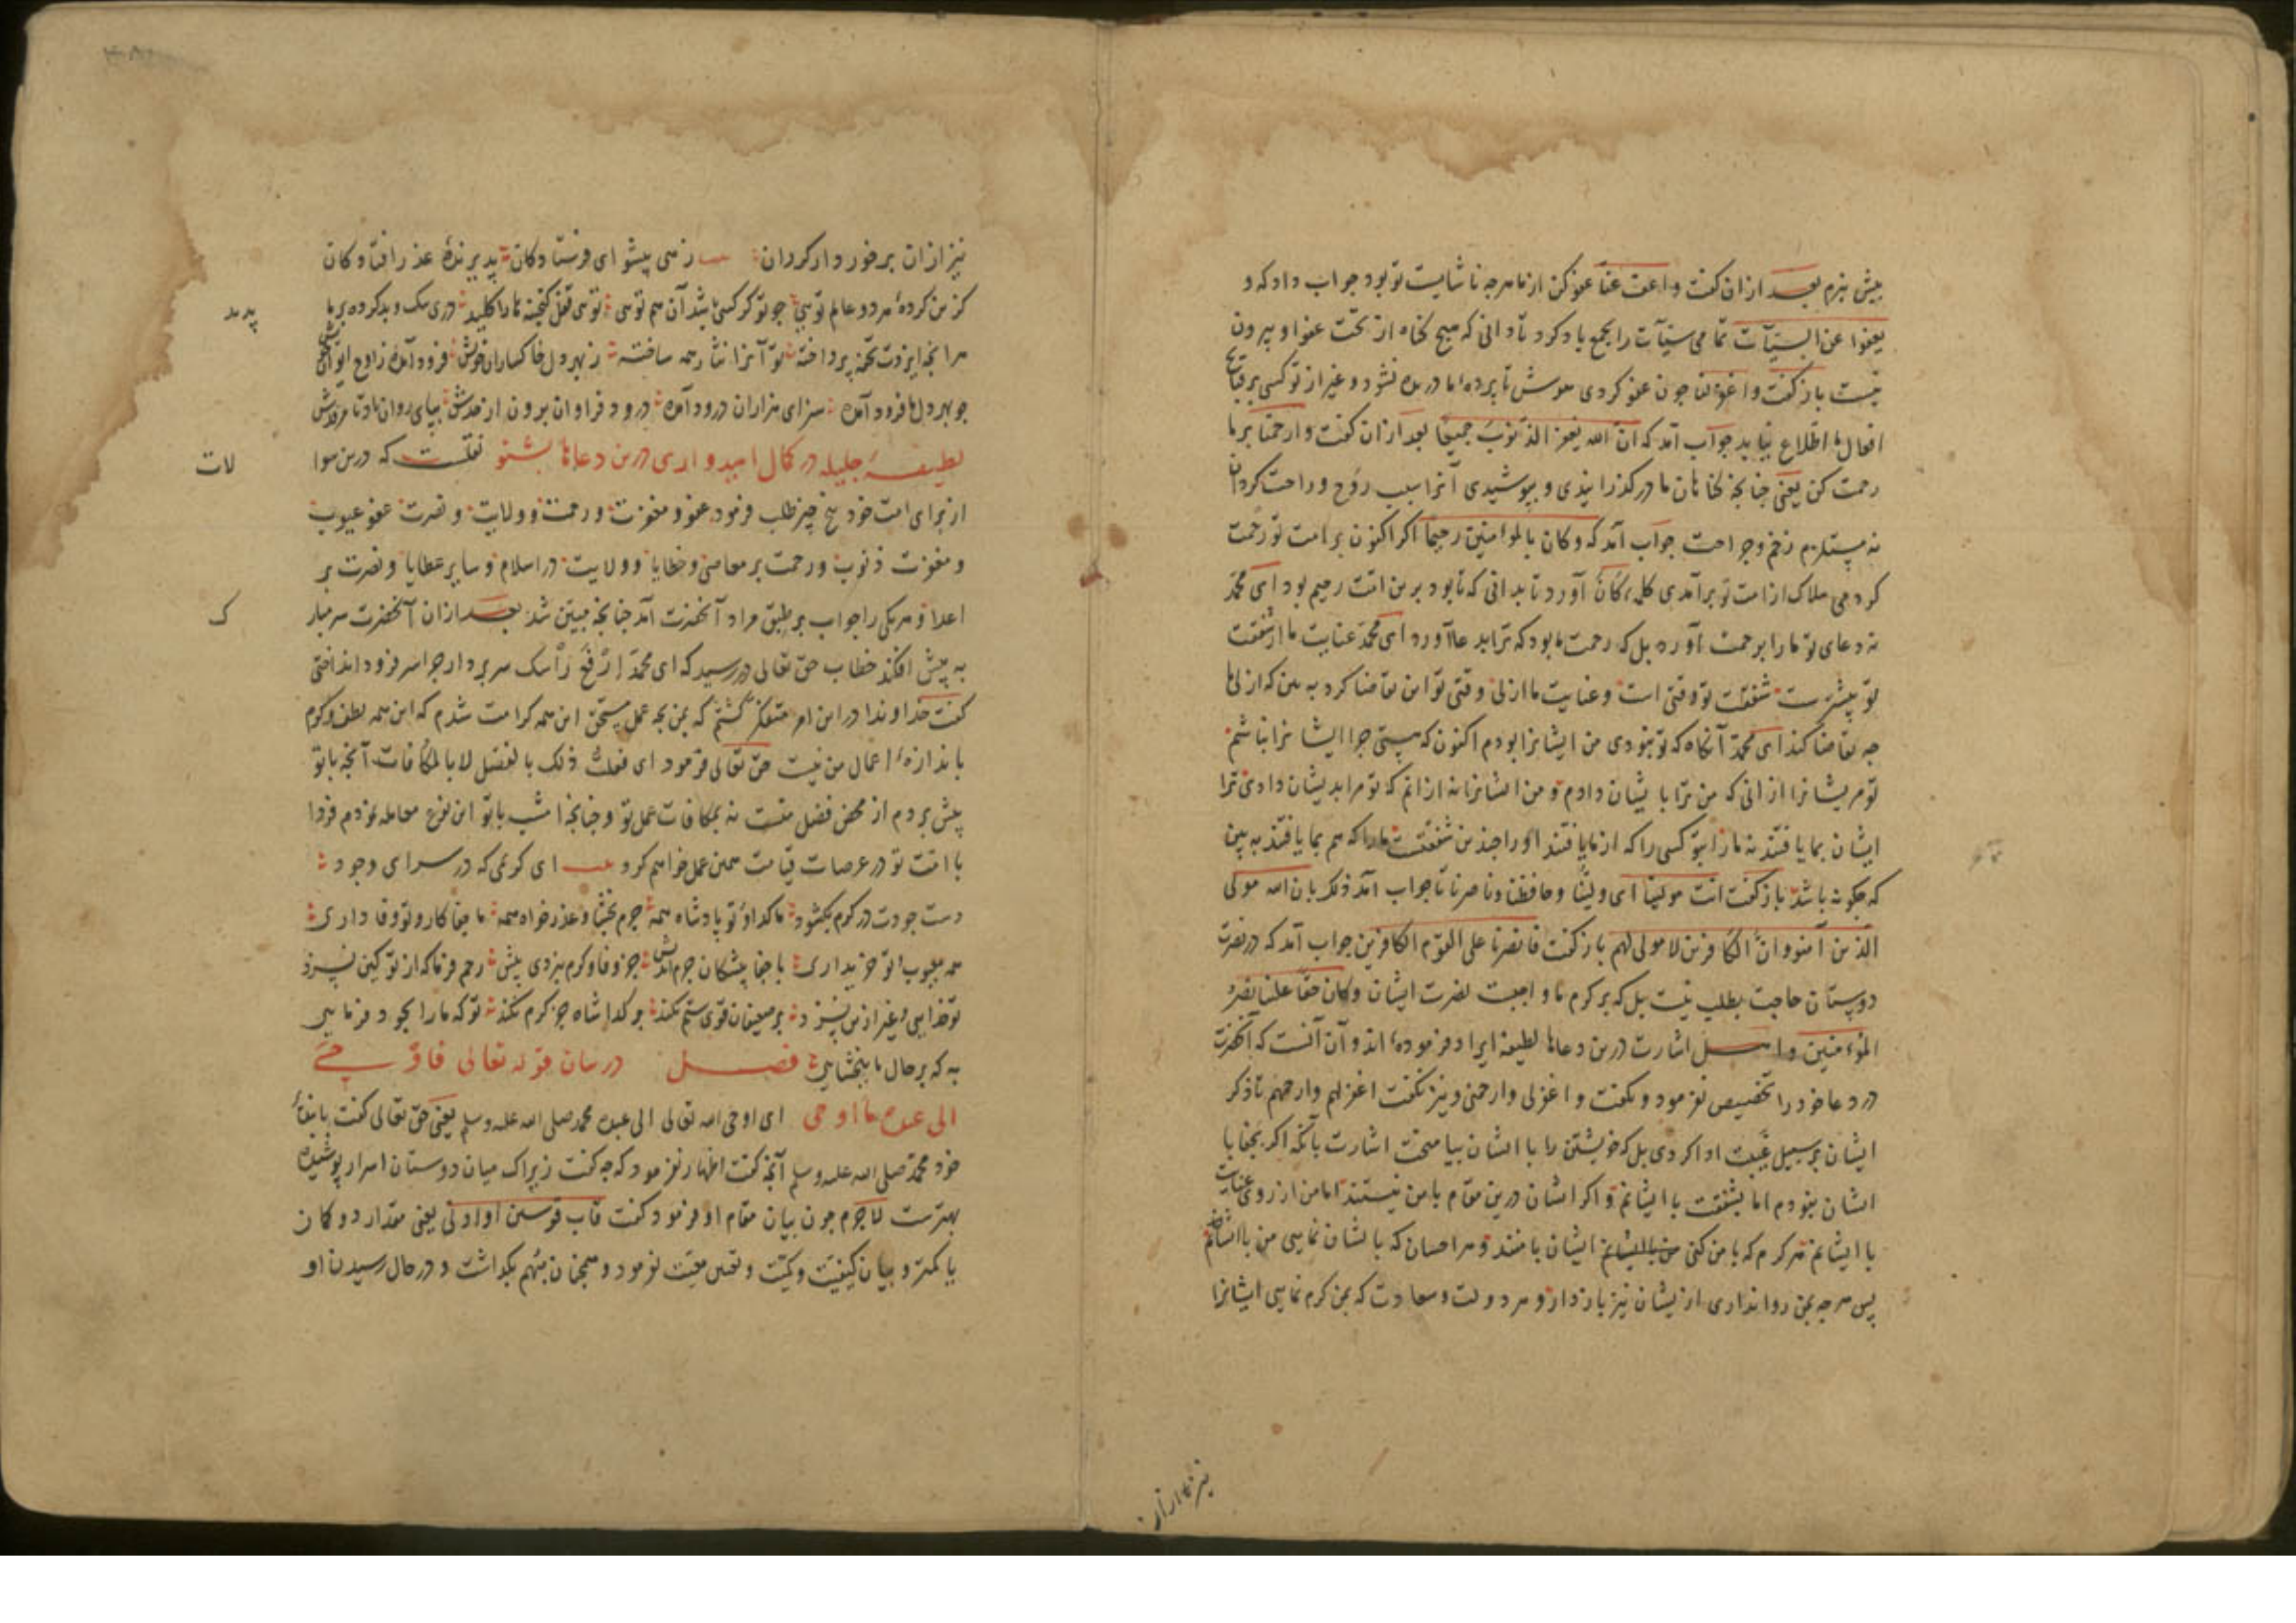 پیش نبرم بعد ازان کفت واعف عنا عفو کن از ما هرچه ناشایست تو بود جواب داد که و
یعفوا عن السیّآت تمامی سیّآت را بجمع یاد کرد تا دانی که هیچ کناه از تحت عفو او بیرون
نیست باز کفت واغفرلنا چون عفو کردی بپوش تا پرده ما دریده نشود و غیر از تو کسی بر قبایح
افعال ما اطلاع نیابد جواب آمد که ان الله یغفر الذنوب جمیعا بعد ازان کفت وارحمنا بر ما
رحمت کن یعنی چنانچه کناهان ما درکذرانیدی و بپوشیدی آنرا سبب روح و راحت کردان
نه مستلزم زخم و جراحت جواب آمد که وکان بالمؤمنین رحیما اکر اکنون بر امت تو رحمت
کردمی هلاک از امت تو برآمدی کلمه کان آورد تا بدانی که تا بود برین امت رحیم بود ای محمد
نه دعای تو ما را برحمت آورد بل که رحمت ما بود که ترا بدعا آورد ای محمد عنایت ما از شفقت
تو پیشترست شفقت تو وقتی است و عنایت ما ازلی وقتی تو این تقاضا کرد به بین که ازلی ما
چه تقاضا کند ای محمد آنکاه که تو نبودی من ایشانرا بودم اکنون که هستی چرا ایشانرا نباشم
تو مر ایشانرا ازانی که من ترا بایشان دادم و من ایشانرا نه ازانم که تو مرا بدیشان دادی ترا
ایشان بما یافتند نه ما را بتو کسی را که از ما یافتند او را چندین شفقت ما را که هم بما یافتند به بین
که چکونه باشد باز کفت انت مولینا ای ولینا و حافظنا و ناصرنا تا جواب آمد ذلک بان الله مولی
الذین آمنوا وانّ الکافرین لا مولی لهم باز کفت فانصرنا علی القوم الکافرین جواب آمد که در نصرت
دوستان حاجت بطلب نیست بل که بر کرم ما واجبست نصرت ایشان وکان حقا علینا نصر
المؤمنین واهل اشارت درین دعاها لطیفه ایراد فرموده اند و آن آنست که آنحضرت
در دعا خود را تخصیص نفرمود و نکفت واغفرلی وارحمنی و نیز نکفت اغفرلهم وارحمهم تا ذکر
ایشان بر سبیل غیبت ادا کردی بل که خویشتن را با ایشان بیامیخت اشارت بآنکه اکر بجفا با
ایشان نبودم اما بشفقت با ایشانم و اکر ایشان درین مقام با من نیستند اما من از روی عنایت
با ایشانم هر کرم که با من کنی ایشان با منند و هر احسان که بایشان نمایی من با ایشانم
پس هرچه بمن روا نداری از یشان نیز بازدار و هر دولت و سعادت که بمن کرم نمایی ایشانرا
نیز ازان
نیز ازان برخوردار کردان زهی پیشوای فرستادکان پذیرنده عذر افتادکان
کزین کرده هر دو عالم تویی چو تو کر کسی باشد آن هم تویی تویی قفل کنجینه ما را کلید دری نیک و بد کرده بر ما
پدید
هرآنچه ایزدت تحفه پرداخته تو آنرا نثار رحمه ساخته ز بهر دل خاکساران خویش فرود آمده ز اوج ایوان
چو بهر دل ما فرود آمده سزای هزاران درود آمده درود فراوان برون از
لطیفه جلیله در کمال امیدواری درین دعاها بشنو نقلست که درین سوا
لات
از برای امت خود پنج چیز طلب فرمود عفو و مغفرت و رحمت و ولایت و نصرت عفو عیوب
و مغفرت ذنوب و رحمت بر معاصی و خطایا و ولایت در اسلام و سایر عطایا و نصرت بر
اعدا و هر یکی را جواب بر طبق مراد آنحضرت آمد چنانچه مبین شد بعد ازان آنحضرت سر مبار
ک
به پیش افکند خطاب حق تعالی در رسید که ای محمد ارفع رأسک سر بردار چرا سر فرود انداختی
کفت خداوندا در این امر متفکر کشتم که من بچه عمل مستحق این همه کرامت شدم که این همه لطف و کرم
باندازه اعمال من نیست حق تعالی فرمود ای فعلت ذلک بالفضل لا بالمکافات آنچه با تو
پیش بردم از محض فضل منست نه بمکافات عمل تو و چنانچه امشب با تو این نوع معامله نمودم فردا
با امت تو در عرصات قیامت همین عمل خواهم کرد ای کریمی که در سرای وجود
دست جودت در کرم بکشود ما کدا و تو پادشاه همه جرم بخشا و عذرخواه همه ما جفاکار و تو وفاداری
همه معیوب و تو خریداری با جفا پیشکان جرم اندیش جز وفا و کرم نبردی پیش رحم فرما که از تو کین نسزد
تو خدایی و غیر ازین نسزد بر ضعیفان قوی ستم نکند بر کدا شاه جز کرم نکند تو که ما را بجود فرمایی
به که بر حال ما ببخشایی فصل در بیان قوله تعالی فاوحی
الی عبده ما اوحی ای اوحی الله تعالی الی عبده محمد صلی الله علیه وسلم یعنی حق تعالی کفت با بنده
خود محمد صلی الله علیه وسلم آنچه کفت اظهار نفرمود که چه کفت زیراک میان دوستان اسرار پوشیده
بهترست لاجرم چون بیان مقام او فرمود کفت قاب قوسین او ادنی یعنی مقدار دو کمان
یا کمتر و بیان کیفیت و کمیت و تعین معیت نفرمود و همچنان مبهم بکذاشت و در حال رسیدن او